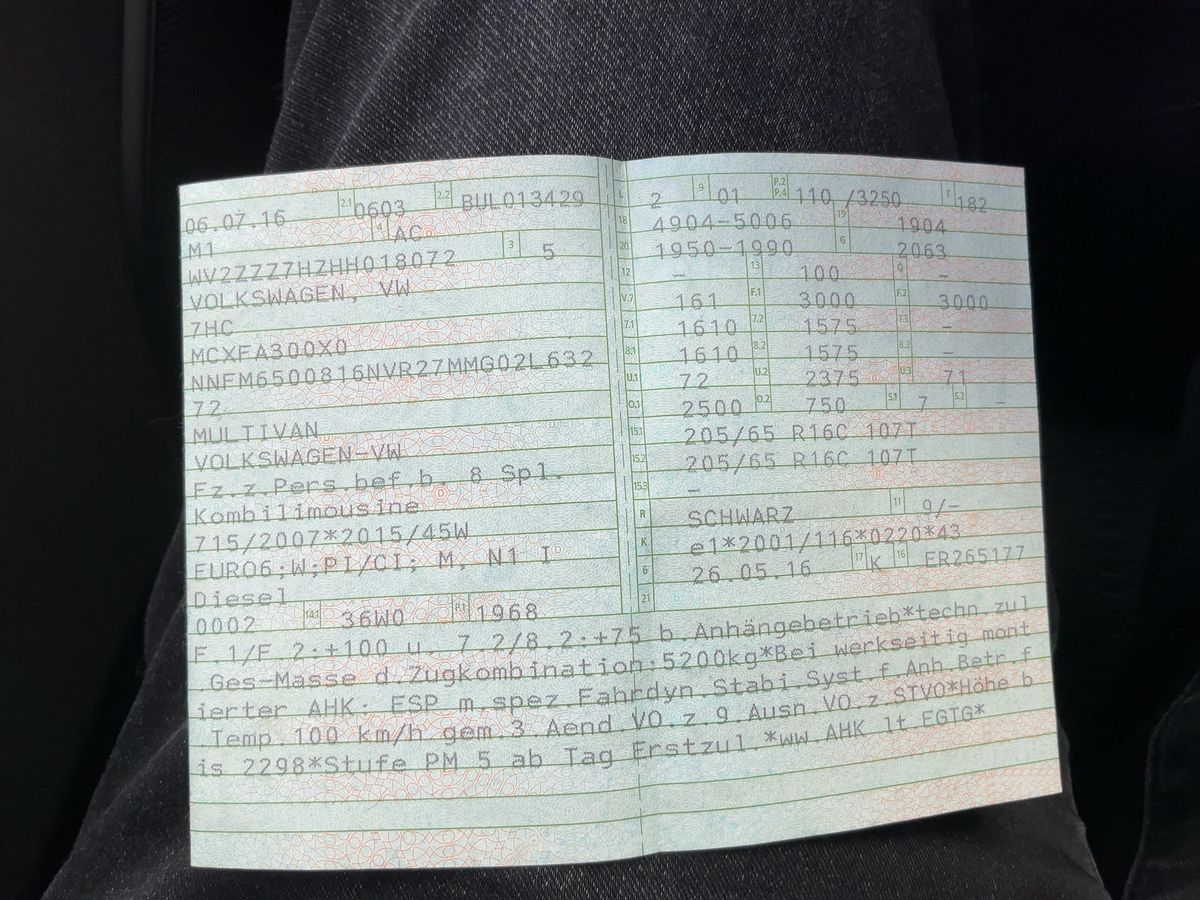 06.07.16 2.1 0603 2.2 BUL013429
M1 4 AC
WV2ZZZ7HZHH018072 3 5
VOLKSWAGEN, VW
7HC
MCXFA300X0
NNFM6500816NVR27MMG02L632
72
MULTIVAN
VOLKSWAGEN-VW
Fz.z.Pers.bef.b. 8 Spl.
Kombilimousine
715/2007*2015/45W
EURO6;W;PI/CI; M, N1 I
Diesel
0002 14.1 36W0 P.1 1968
L 2 9 01 P.2 P.4 110 /3250 T 182
18 4904-5006 19 1904
20 1950-1990 G 2063
12 – 13 100 Q –
V.7 161 F.1 3000 F.2 3000
7.1 1610 7.2 1575 7.3 –
8.1 1610 8.2 1575 8.3 –
U.1 72 U.2 2375 U.3 71
O.1 2500 O.2 750 S.1 7 S.2 –
15.1 205/65 R16C 107T
15.2 205/65 R16C 107T
15.3 –
R SCHWARZ 11 9/–
K e1*2001/116*0220*43
6 26.05.16 17 K 16 ER265177
21
F.1/F.2:+100 u. 7.2/8.2:+75 b.Anhängebetrieb*techn.zul
.Ges-Masse d.Zugkombination:5200kg*Bei werkseitig mont
ierter AHK: ESP m.spez.Fahrdyn.Stabi.Syst.f.Anh.Betr.f
.Temp.100 km/h gem.3.Aend.VO.z.9.Ausn.VO.z.STVO*Höhe b
is 2298*Stufe PM 5 ab Tag Erstzul.*ww.AHK lt.EGTG*